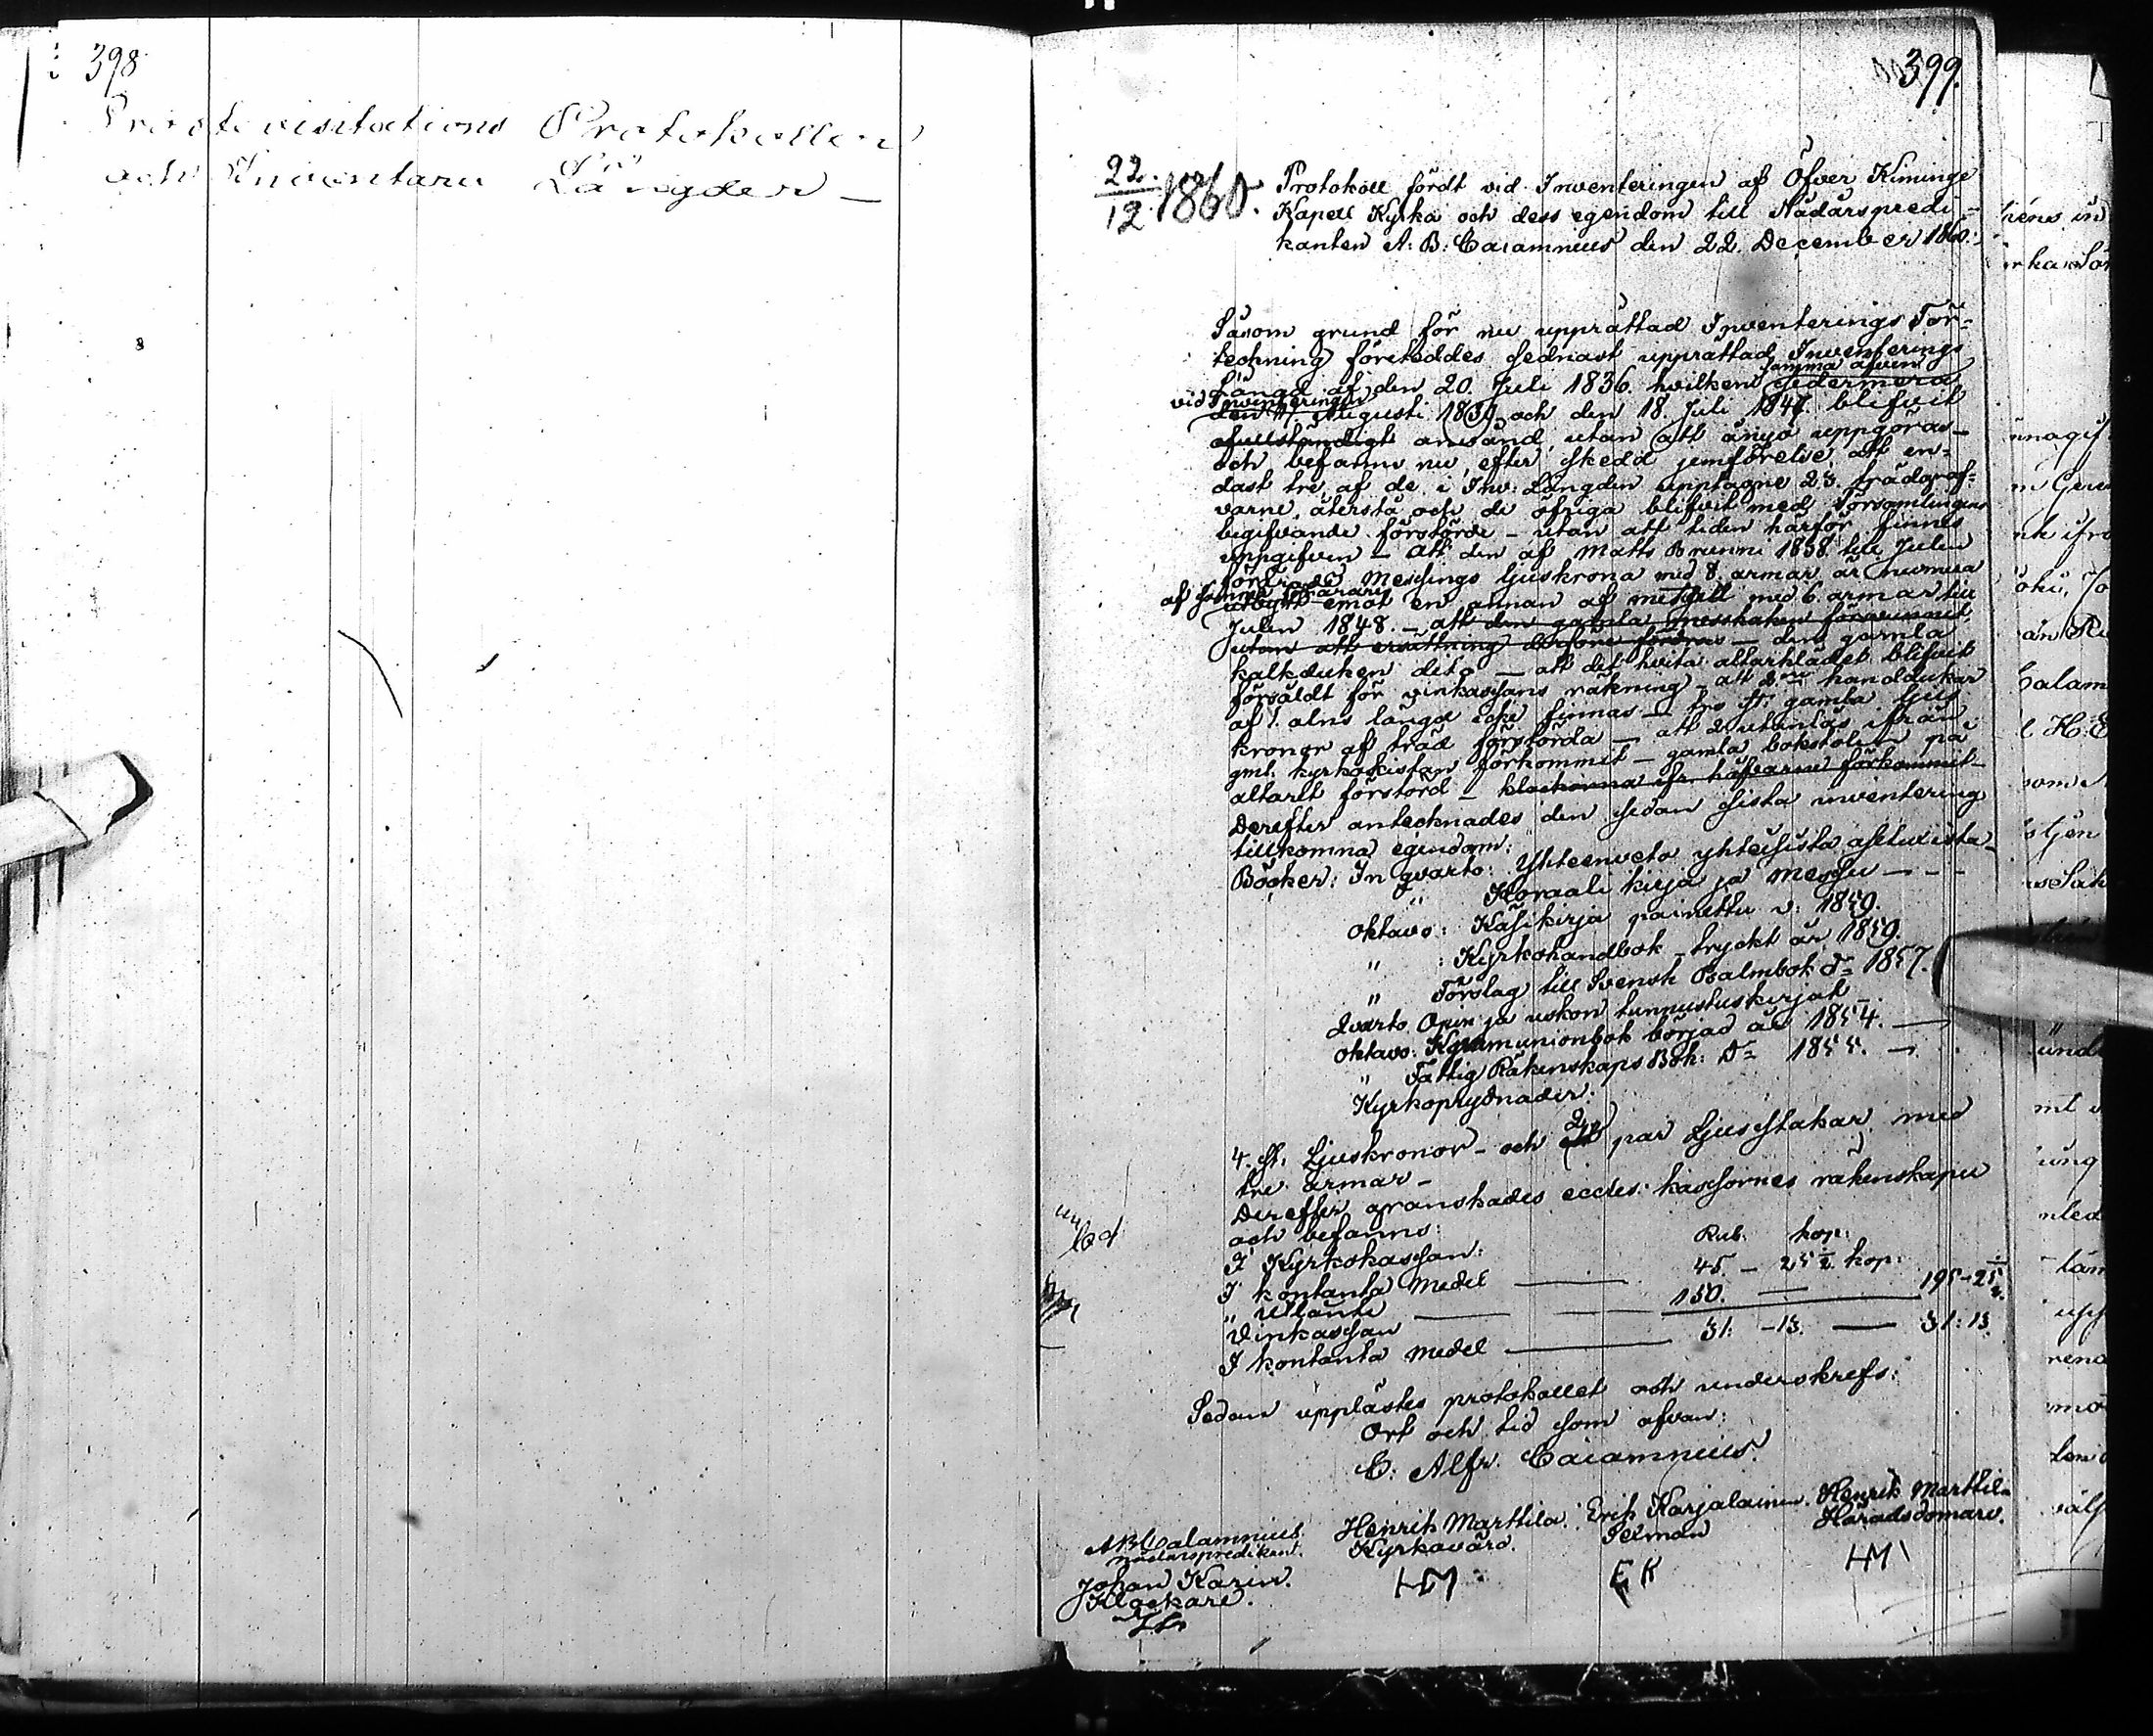 398
Prostevisitations Protokoller
och Inventarii Längder –
399.
22./12. 1860. Protokoll fördt vid Inventeringen af Öfver Kiminge
Kapell Kyrka och dess egendom till Nådårspredi-
kanten A: B: Calamnius den 22. December 1860.
Såsom grund för nu upprättad Inventerings För-
teckning företeddes sednast upprättad Inventerings
Längd af den 20. Juli 1836. hvilken sedermera samma äfven
vid Inventeringen den 17 Augusti 1839 och den 18. Juli 1847. blifvit
ofullständigt använd utan att ånyo uppgöras –
och befanns nu, efter skedd jemförelse, att en-
dast tre af de i Inv: Längden upptagne 23. trädgraf-
varne återstå och de öfriga blifvit med Församlingens
begifvande förstörde – utan att tiden härför finnes
uppgifven – att den af Matts Brunni 1838. till Julen
förärade Messings ljuskrona med 8. armar är numera
af samma förärare utbytt emot en annan af metall med 6. armar till
Julen 1848. – att den gamla messhaken försvunnit,
utan att ersättning derföre fordras – den gamla
kalkduken dito – att det hvita altarklädet blifvit
försåldt för vinkassans räkning – att 2ne handdukar
af 1. alns längd icke finnas – tre st: gamla ljus
kronor af träd förstörda – att 2 utanlås ifrån
gml. kyrkokistan förkommit – gamla bokstolen på
altaret förstörd – klockorna förkommit
Derefter antecknades den sedan sista inventering
tillkomna egendom:
Böcker: In qvarto: Yhteenveto yhteisistä asetuxista –
" Koraali kirja ja Messu – – –
Oktavo: Käsikirja painettu v: 1859.
" : Kyrkohandbok – tryckt år 1859.
" Förslag till Svensk Psalmbok do 1857.
Qvarto Opin ja uskon tunnustuskirjat –
Oktavo: Kommunionbok börjad år 1854. –
" Fattig Räkenskaps Bok: Do 1855. –
Kyrkoprydnader:
4. st: Ljuskronor – och 2ne par Ljusstakar med
tre armar –
Derefter granskades eccles: kassornes räkenskaper
och befanns:
Rub. kop:
I Kyrkokassan:
I kontanta Medel — 45. – 25 1/2 kop:
" utlånte — 150. — 195 – 25 1/2.
Vinkassan
I kontanta medel — 31. – 13. — 31: 13.
Sedan upplästes protokollet och underskrefs:
Ort och tid som ofvan:
C: Alfr. Calamnius.
A B Calamnius
nådårspredikant.
Henrik Marttila
Kyrkovärd.
HM
Erik Karjalainen
Sexman
E K
Henrik Marttila
Häradsdomare.
HM
Johan Karin.
Klockare.